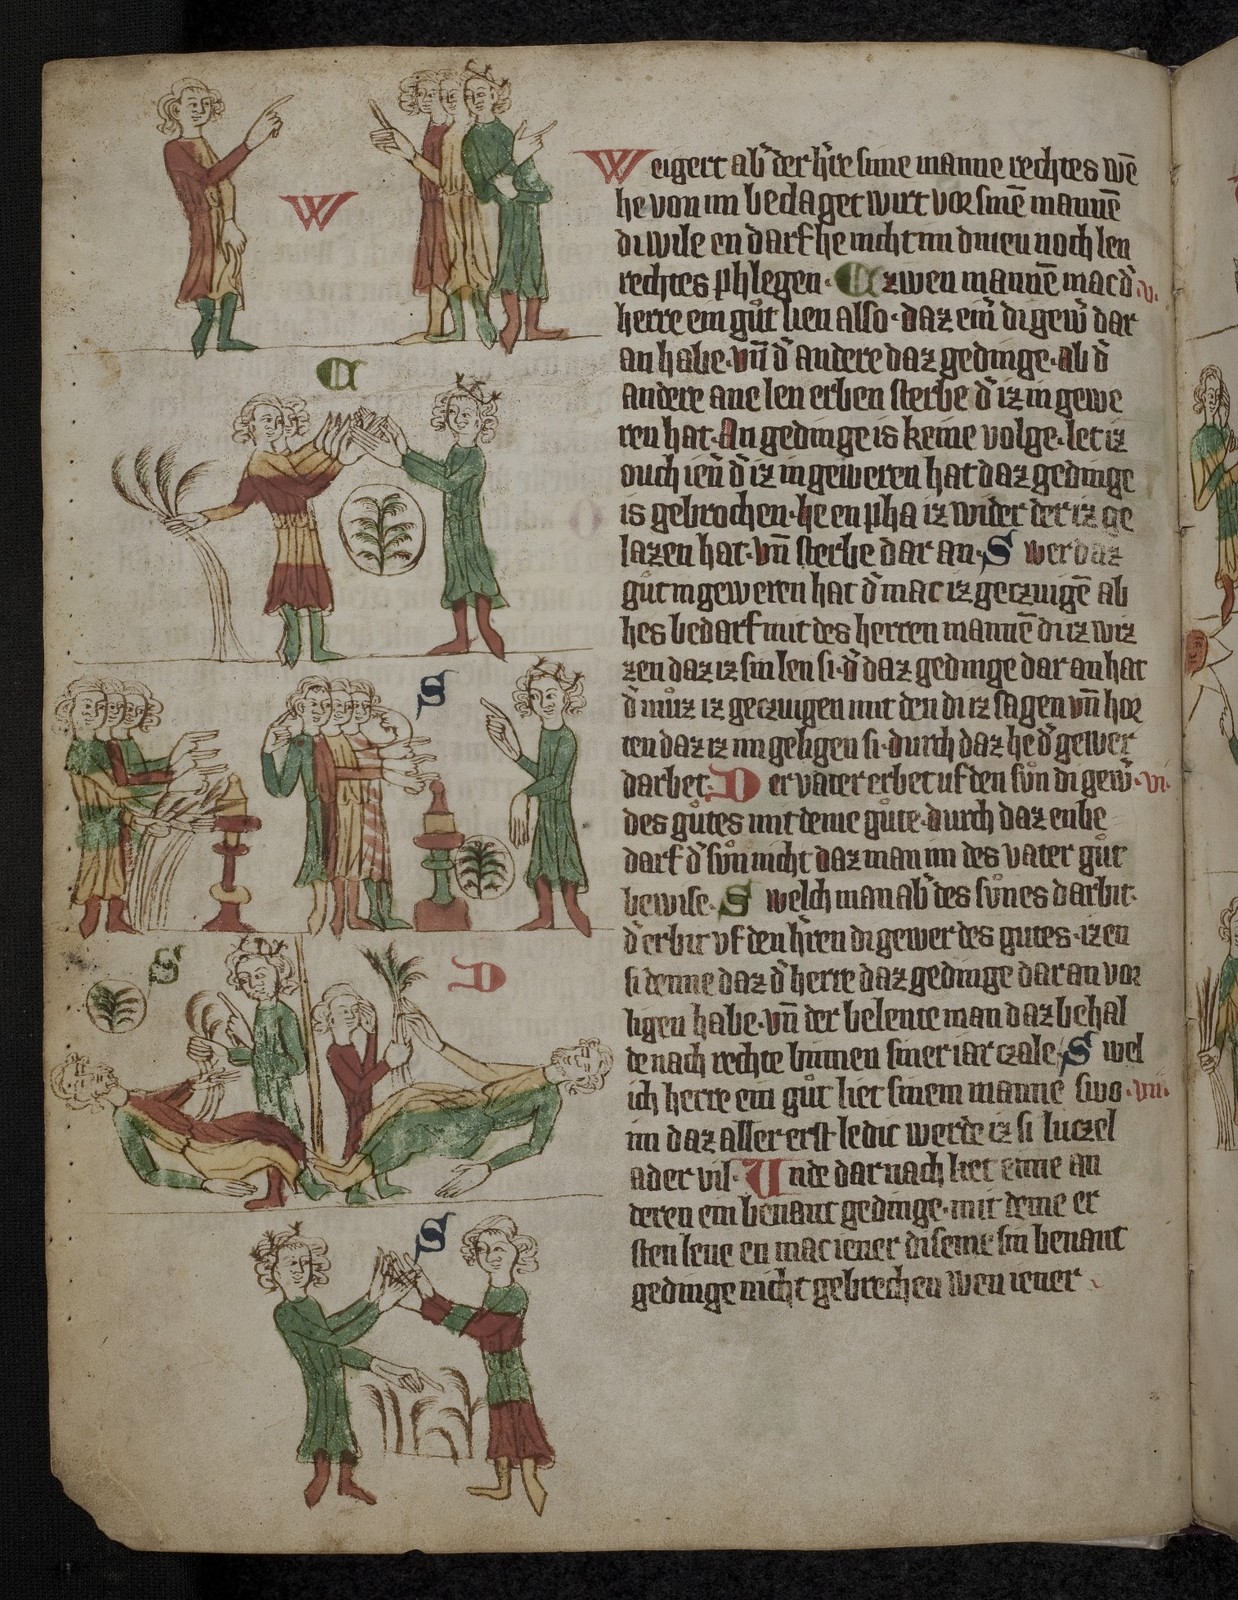 W
Weigert ab̛ der h̛re sime manne rechtes wē
he von im beclaget wirt vor sinē mannē
di wile en darf he nicht im dinen noch len
rechtes phlegen· Czwen mannē mac d̛ ·v·
herre ein gůt lien also· daz ein̛ di gew̛ dar
an habe· vn̄ d̛ andere daz gedinge· ab d̛
C
andere ane len erben sterbe d̛ iz in gewe
ren hat· An gedinge is keine volge· let iz
ouch ien̛ d̛ iz in geweren hat daz gedinge
is gebrochen· he en pha iz wider der iz ge
lazen hat· vn̄ sterbe dar an· Swer daz
gůt in geweren hat d̛ mac iz geczuigē ab
hes bedarf mit des herren mannē di iz wiz
zen daz iz sin len si· d̛ daz gedinge dar an hat
S
d̛ můz iz geczuigen mit den di iz sagen vn̄ hor
ten daz iz im geligen si· durch daz he d̛ gewer
darbet· Der vater erbet uf den sůn di gew̛ ·vi·
des gůtes mit deme gůte· durch daz en be
darf d̛ sůn nicht daz man im des vater gůt
bewise· Swelch man ab̛ des sůnes darbit·
d̛ erbit vf den h̛ren di gewer des gutes· iz en
S D
si denne daz d̛ herre daz gedinge dar an vor
ligen habe· vn̄ der belente man daz behal
de nach rechte binnen siner iarczale· Swel
ich herre ein gůt liet sinem manne swo ·vii·
im daz aller erst ledic werde iz si luczel
ader vil· Unde dar nach liet eime an
deren ein benant gedinge· mit deme er
S
sten lene en mac iener diseme sin benant
gedinge nicht gebrechen wen iener